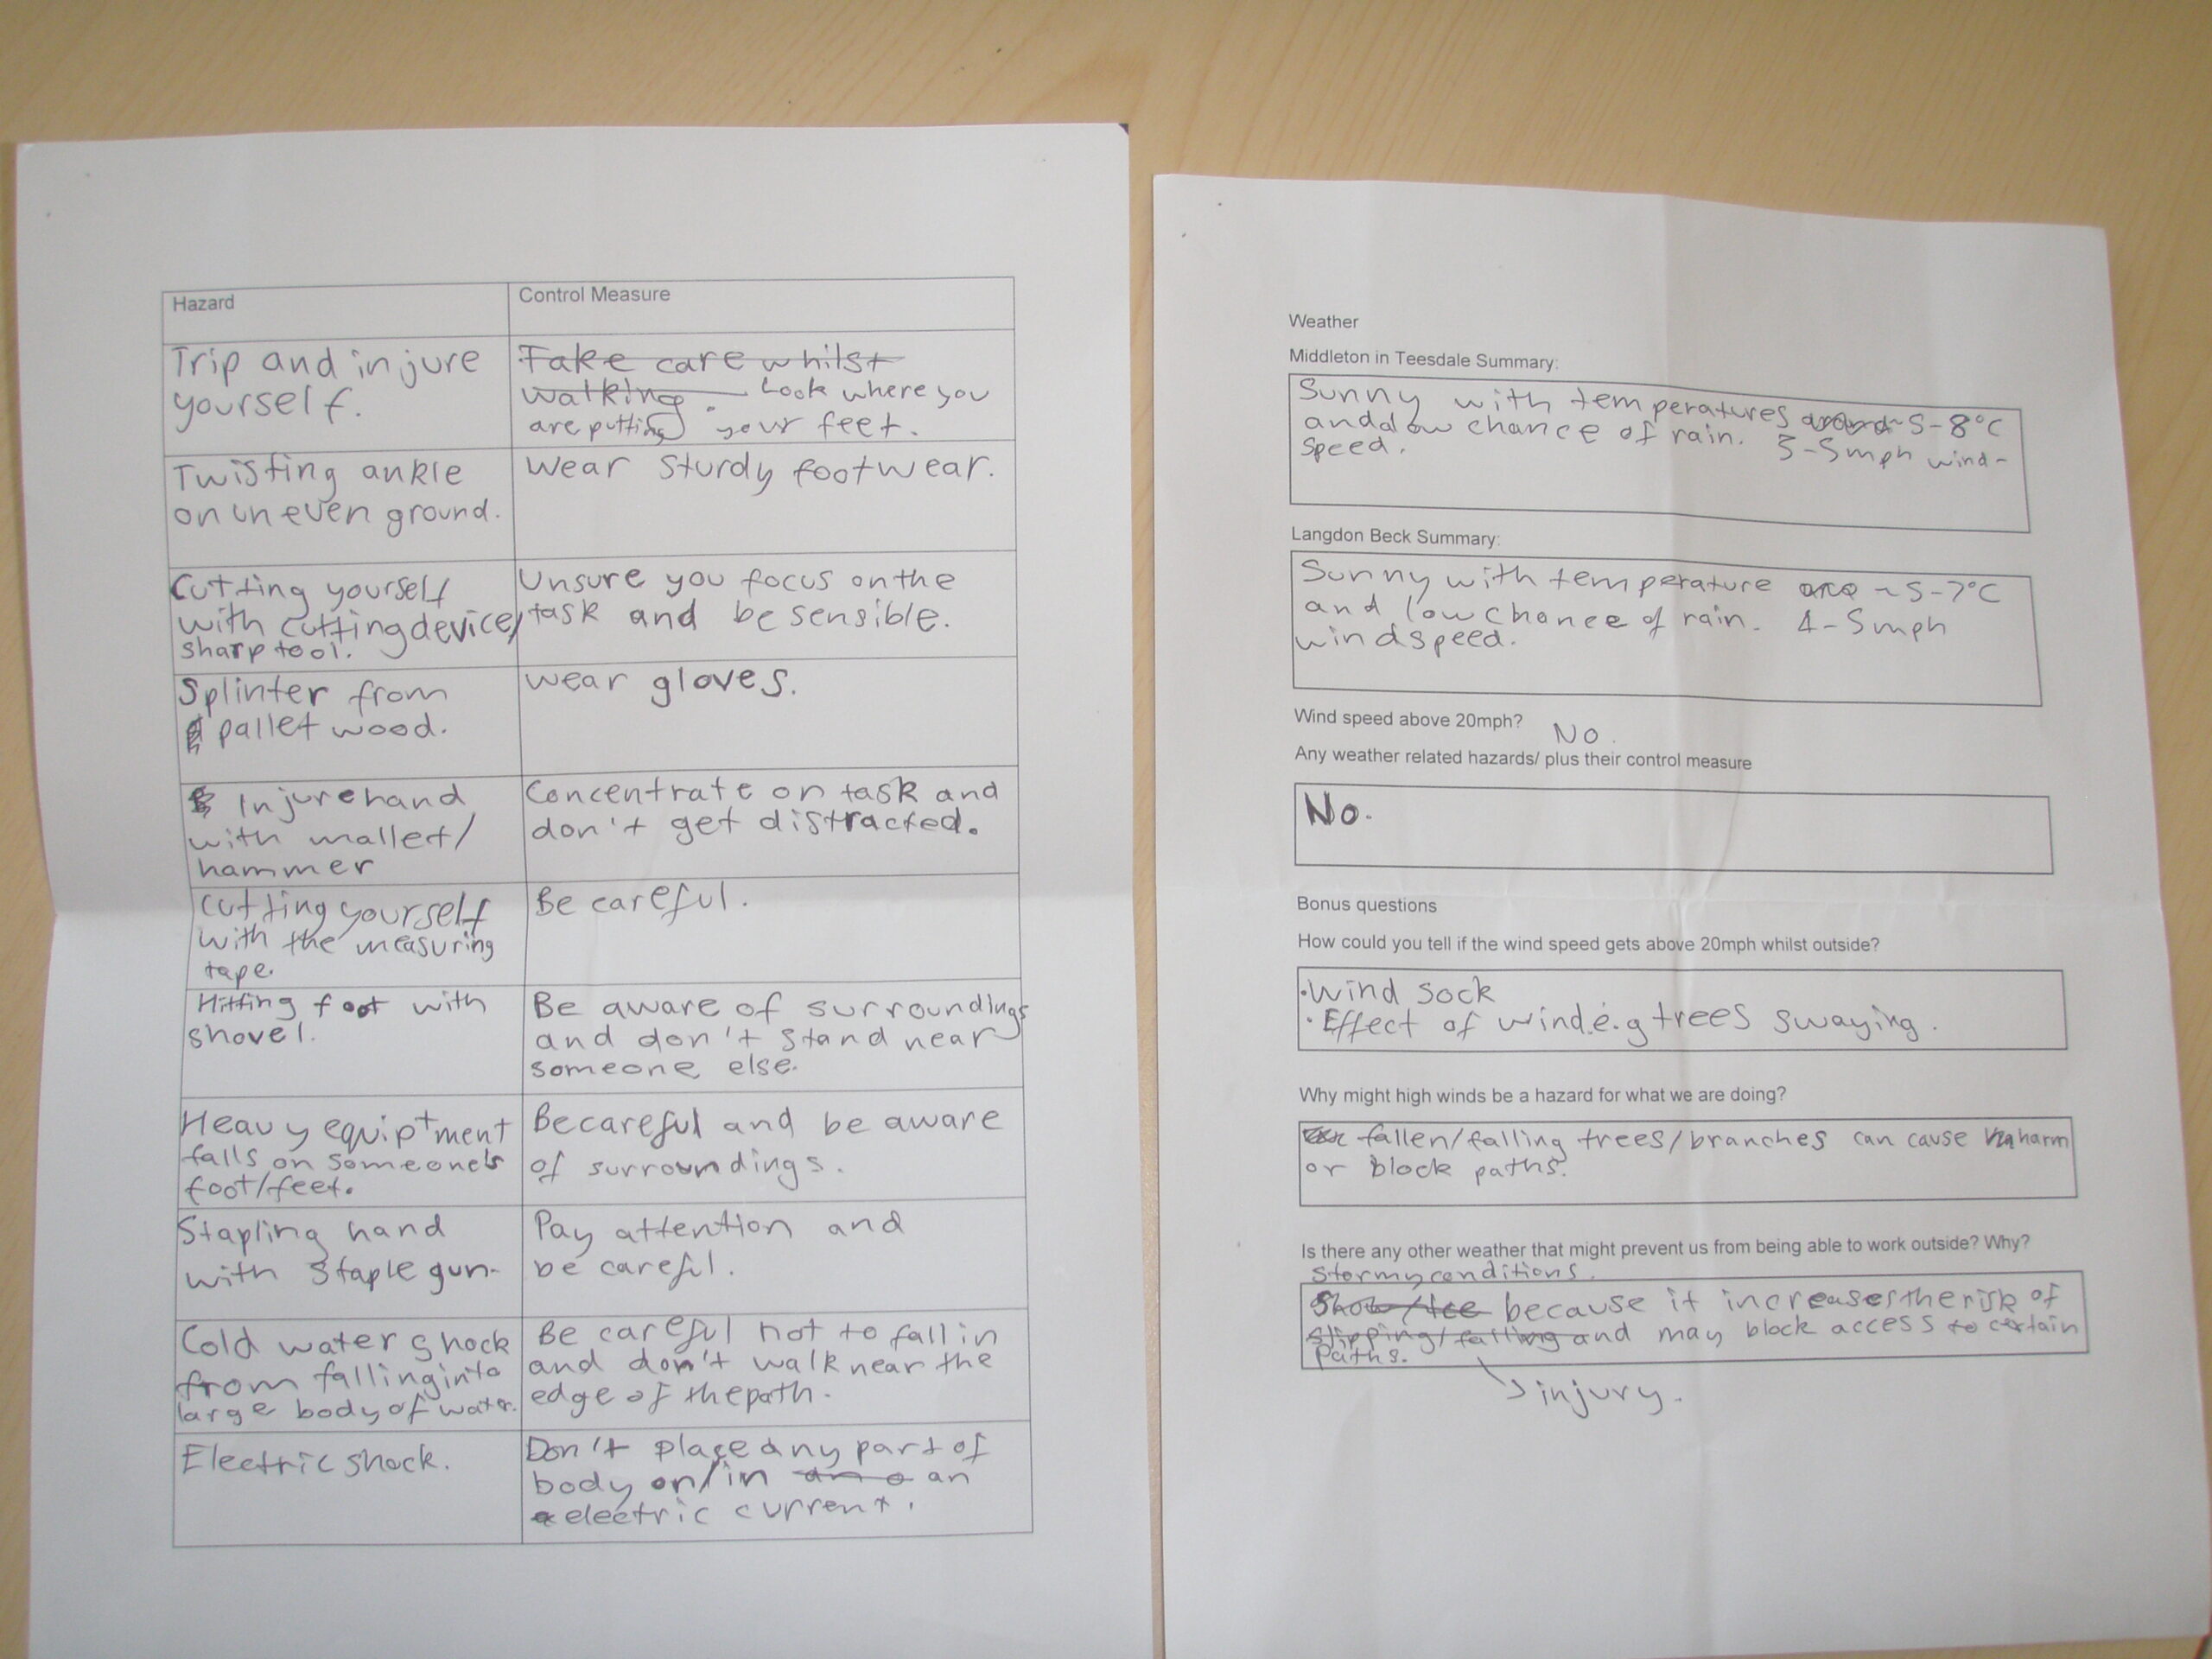 Hazard
Control Measure
Trip and injure
yourself.
Take care whilst
walking. Look where you
are putting your feet.
Twisting ankle
on uneven ground.
Wear sturdy footwear.
Cutting yourself
with cutting device/
sharp tool.
Unsure you focus on the
task and be sensible.
Splinter from
pallet wood.
wear gloves.
Injure hand
with mallet/
hammer
Concentrate on task and
don't get distracted.
Cutting yourself
with the measuring
tape.
Be careful.
Hitting foot with
shovel.
Be aware of surroundings
and don't stand near
someone else.
Heavy equiptment
falls on someone's
foot/feet.
Be careful and be aware
of surroundings.
Stapling hand
with staple gun.
Pay attention and
be careful.
Cold water shock
from falling into
large body of water.
Be careful not to fall in
and don't walk near the
edge of the path.
Electric shock.
Don't place any part of
body on/in an
electric current.
Weather
Middleton in Teesdale Summary:
Sunny with temperatures around ~5-8°C
and low chance of rain. 3-5mph wind-
speed.
Langdon Beck Summary:
Sunny with temperature ~5-7°C
and low chance of rain. 4-5mph
windspeed.
Wind speed above 20mph?
No.
Any weather related hazards/ plus their control measure
No.
Bonus questions
How could you tell if the wind speed gets above 20mph whilst outside?
·Wind sock
·Effect of wind e.g trees swaying.
Why might high winds be a hazard for what we are doing?
fallen/falling trees/branches can cause harm
or block paths.
Is there any other weather that might prevent us from being able to work outside? Why?
Stormy conditions.
Snow/Ice because it increases the risk of
slipping/falling and may block access to certain
paths.
injury.